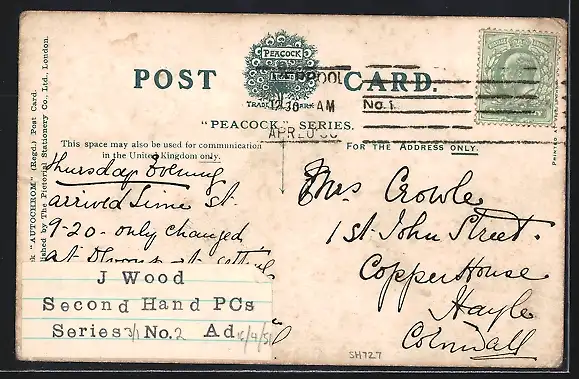 POST CARD.
PEACOCK
TRADE MARK
POOL
12.30 AM
No. 1.
"PEACOCK" SERIES.
This space may also be used for communication
in the United Kingdom only.
FOR THE ADDRESS ONLY.
"AUTOCHROM" (Regd.) Post Card.
by The Pictorial Stationery Co., Ltd., London.
Thursday Evening
arrived Lime St.
9-20 - only changed
at
Mrs Crowle
1 St. John Street.
Copperhouse
Hayle
Cornwall
J Wood
Second Hand PCs
Series 3/1 No. 2 Ad
SH727